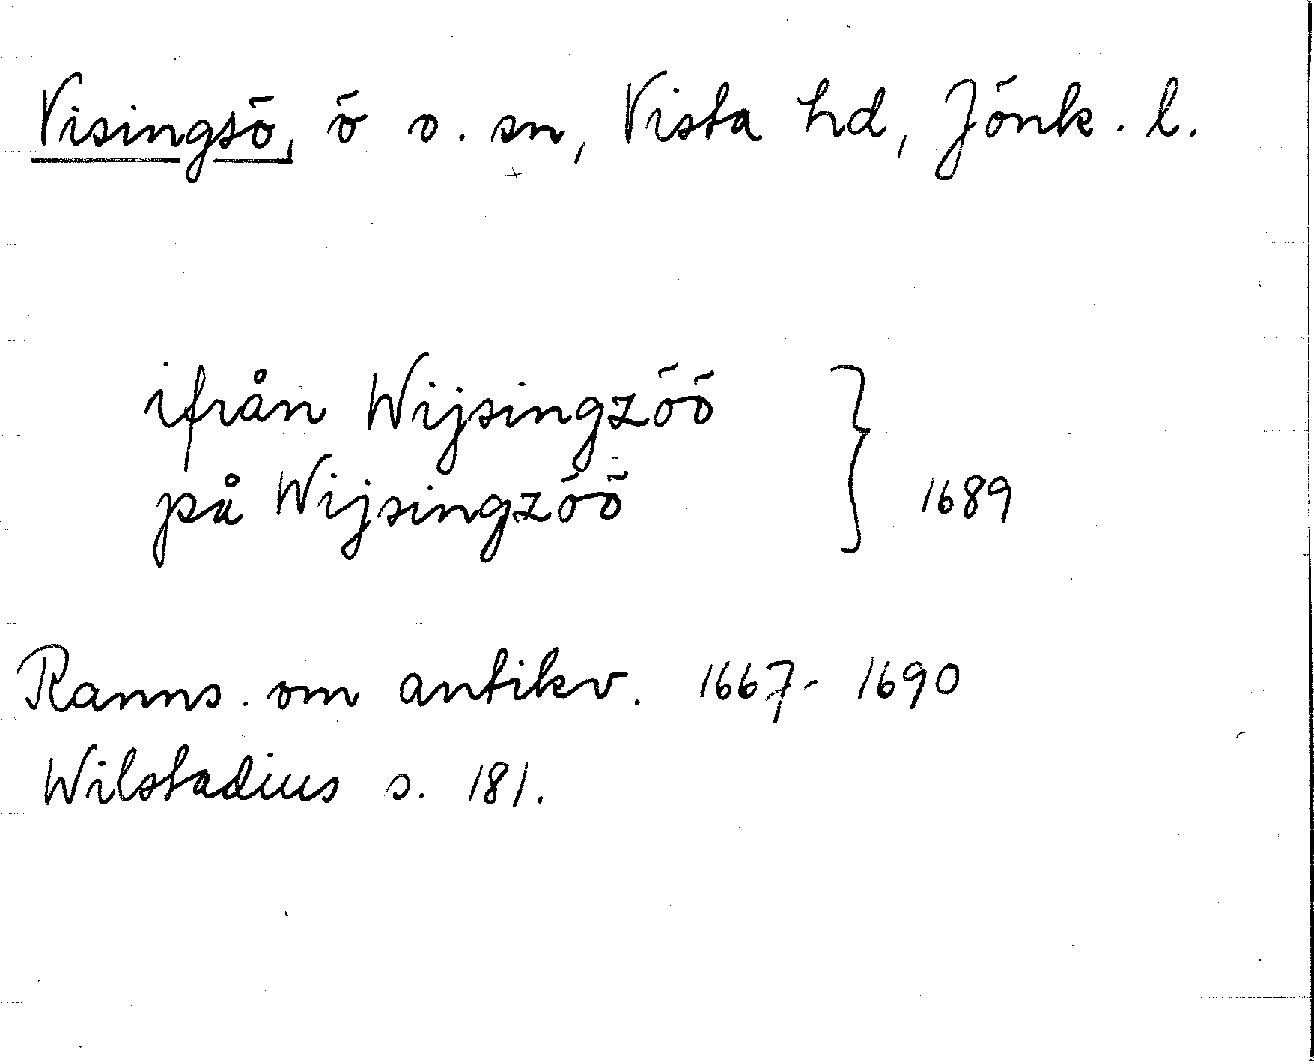 Visingsö, ö o. sn, Vista hd, Jönk. l.
ifrån Wijsingzöö
på Wijsingzöö } 1689
Ranns. om antikv. 1667-1690
Wilstadius s. 181.